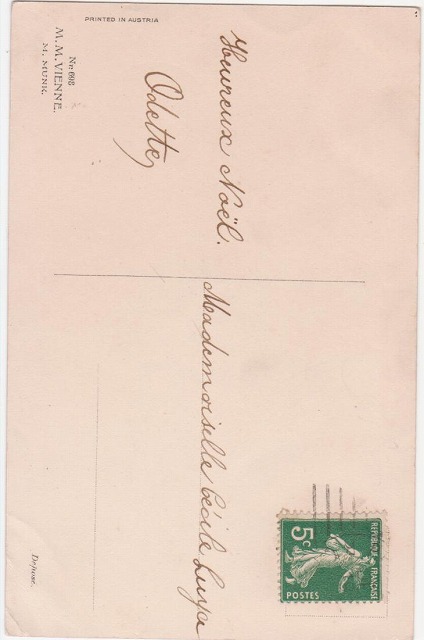 PRINTED IN AUSTRIA
Nr 698
M. M. VIENNE.
M. MUNK.
Heureux Noël.
Odette
Mademoiselle Cécile Luya
5c
REPUBLIQUE FRANÇAISE
POSTES